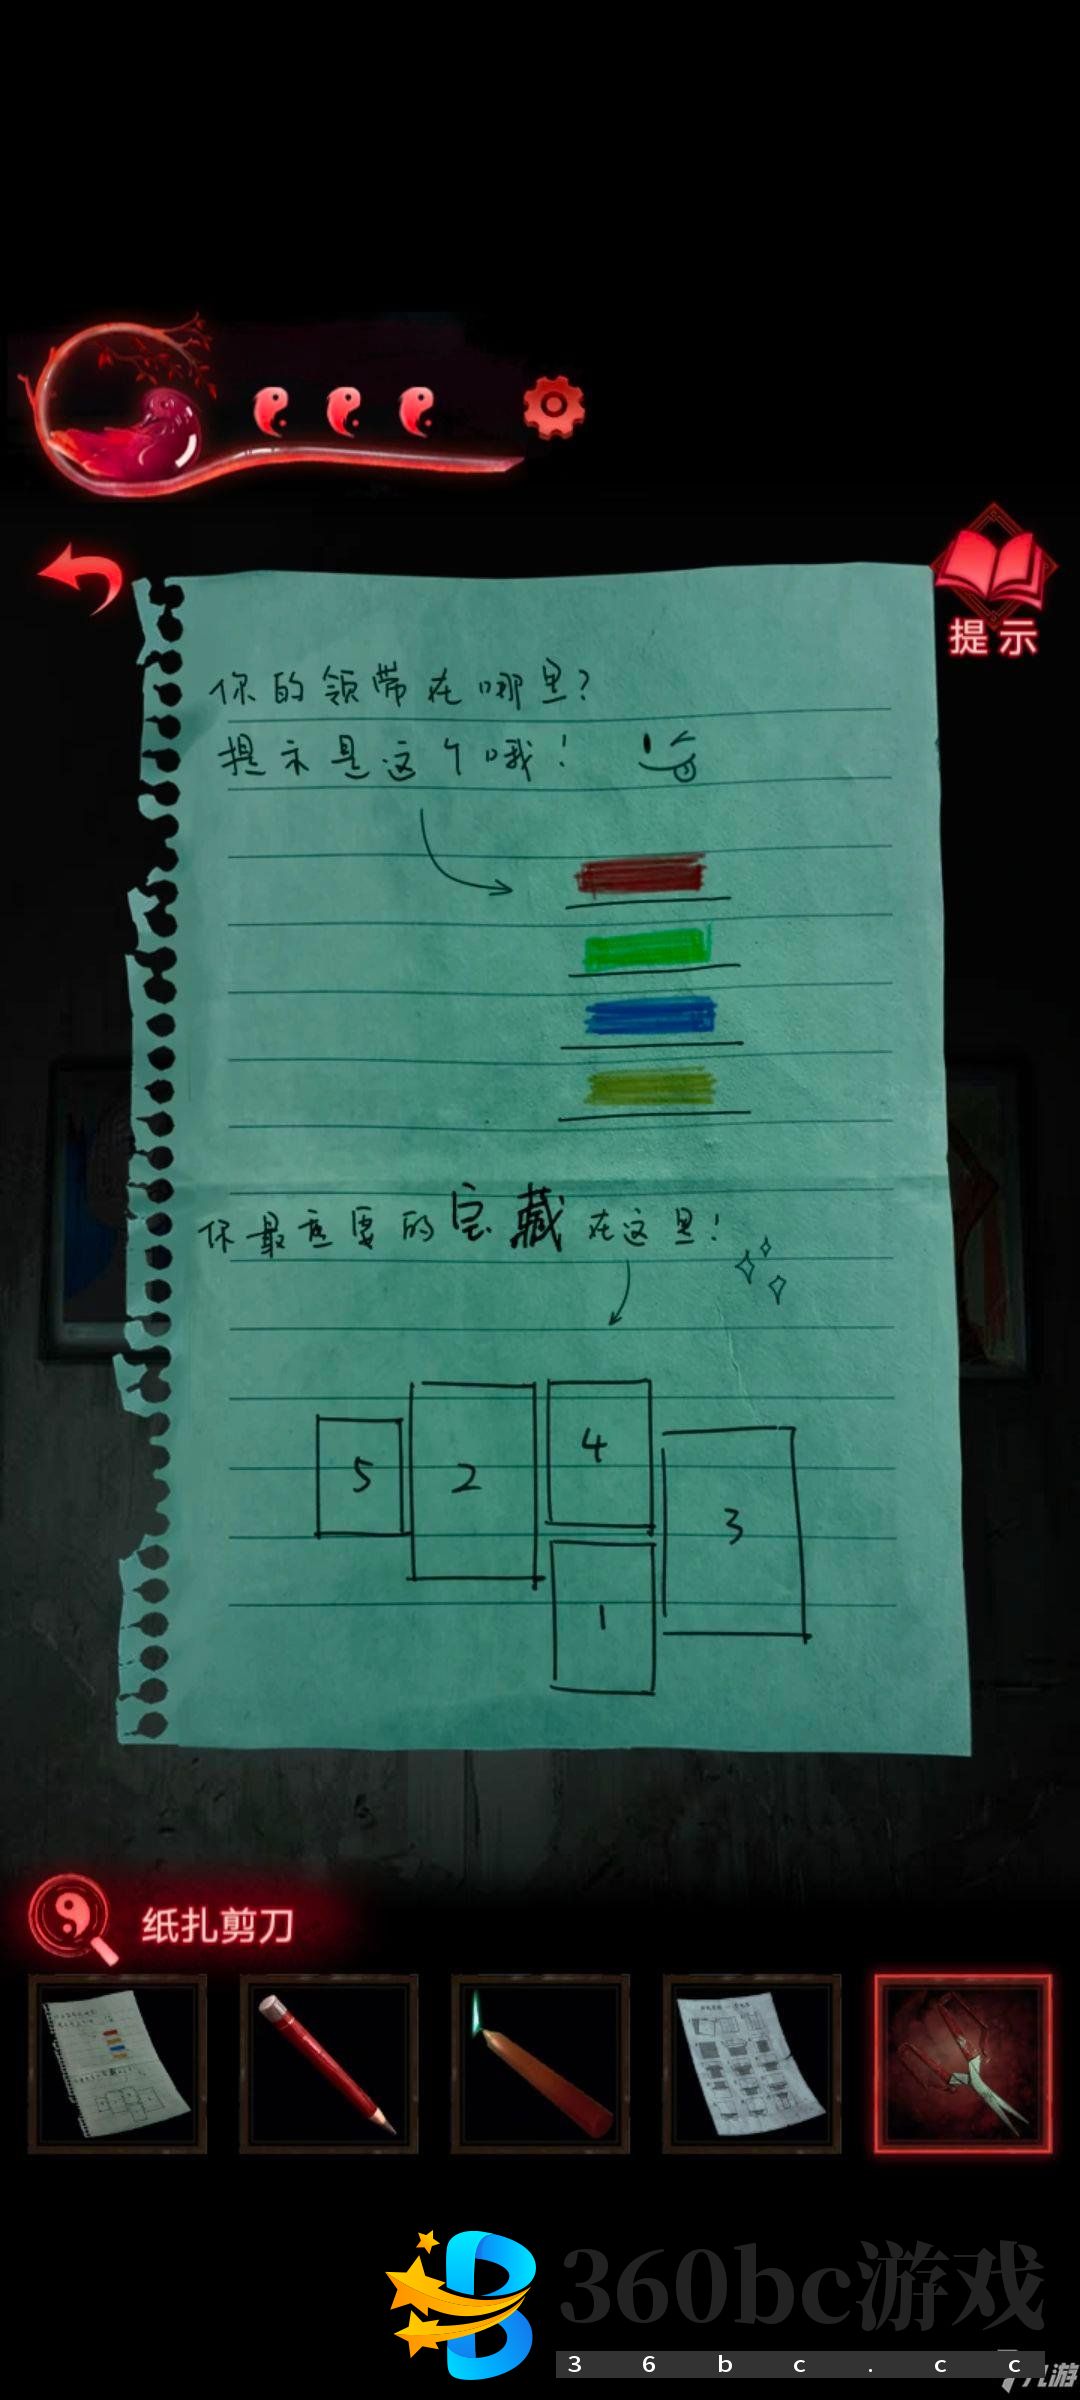 提示
你的领带在哪里?
提示是这个哦!
你最重要的宝藏在这里!
5
2
4
3
1
纸扎剪刀
360bc游戏
36bc.cc
九游